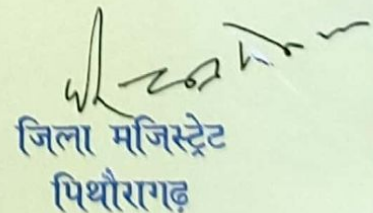 जिला मजिस्ट्रेट
पिथौरागढ़